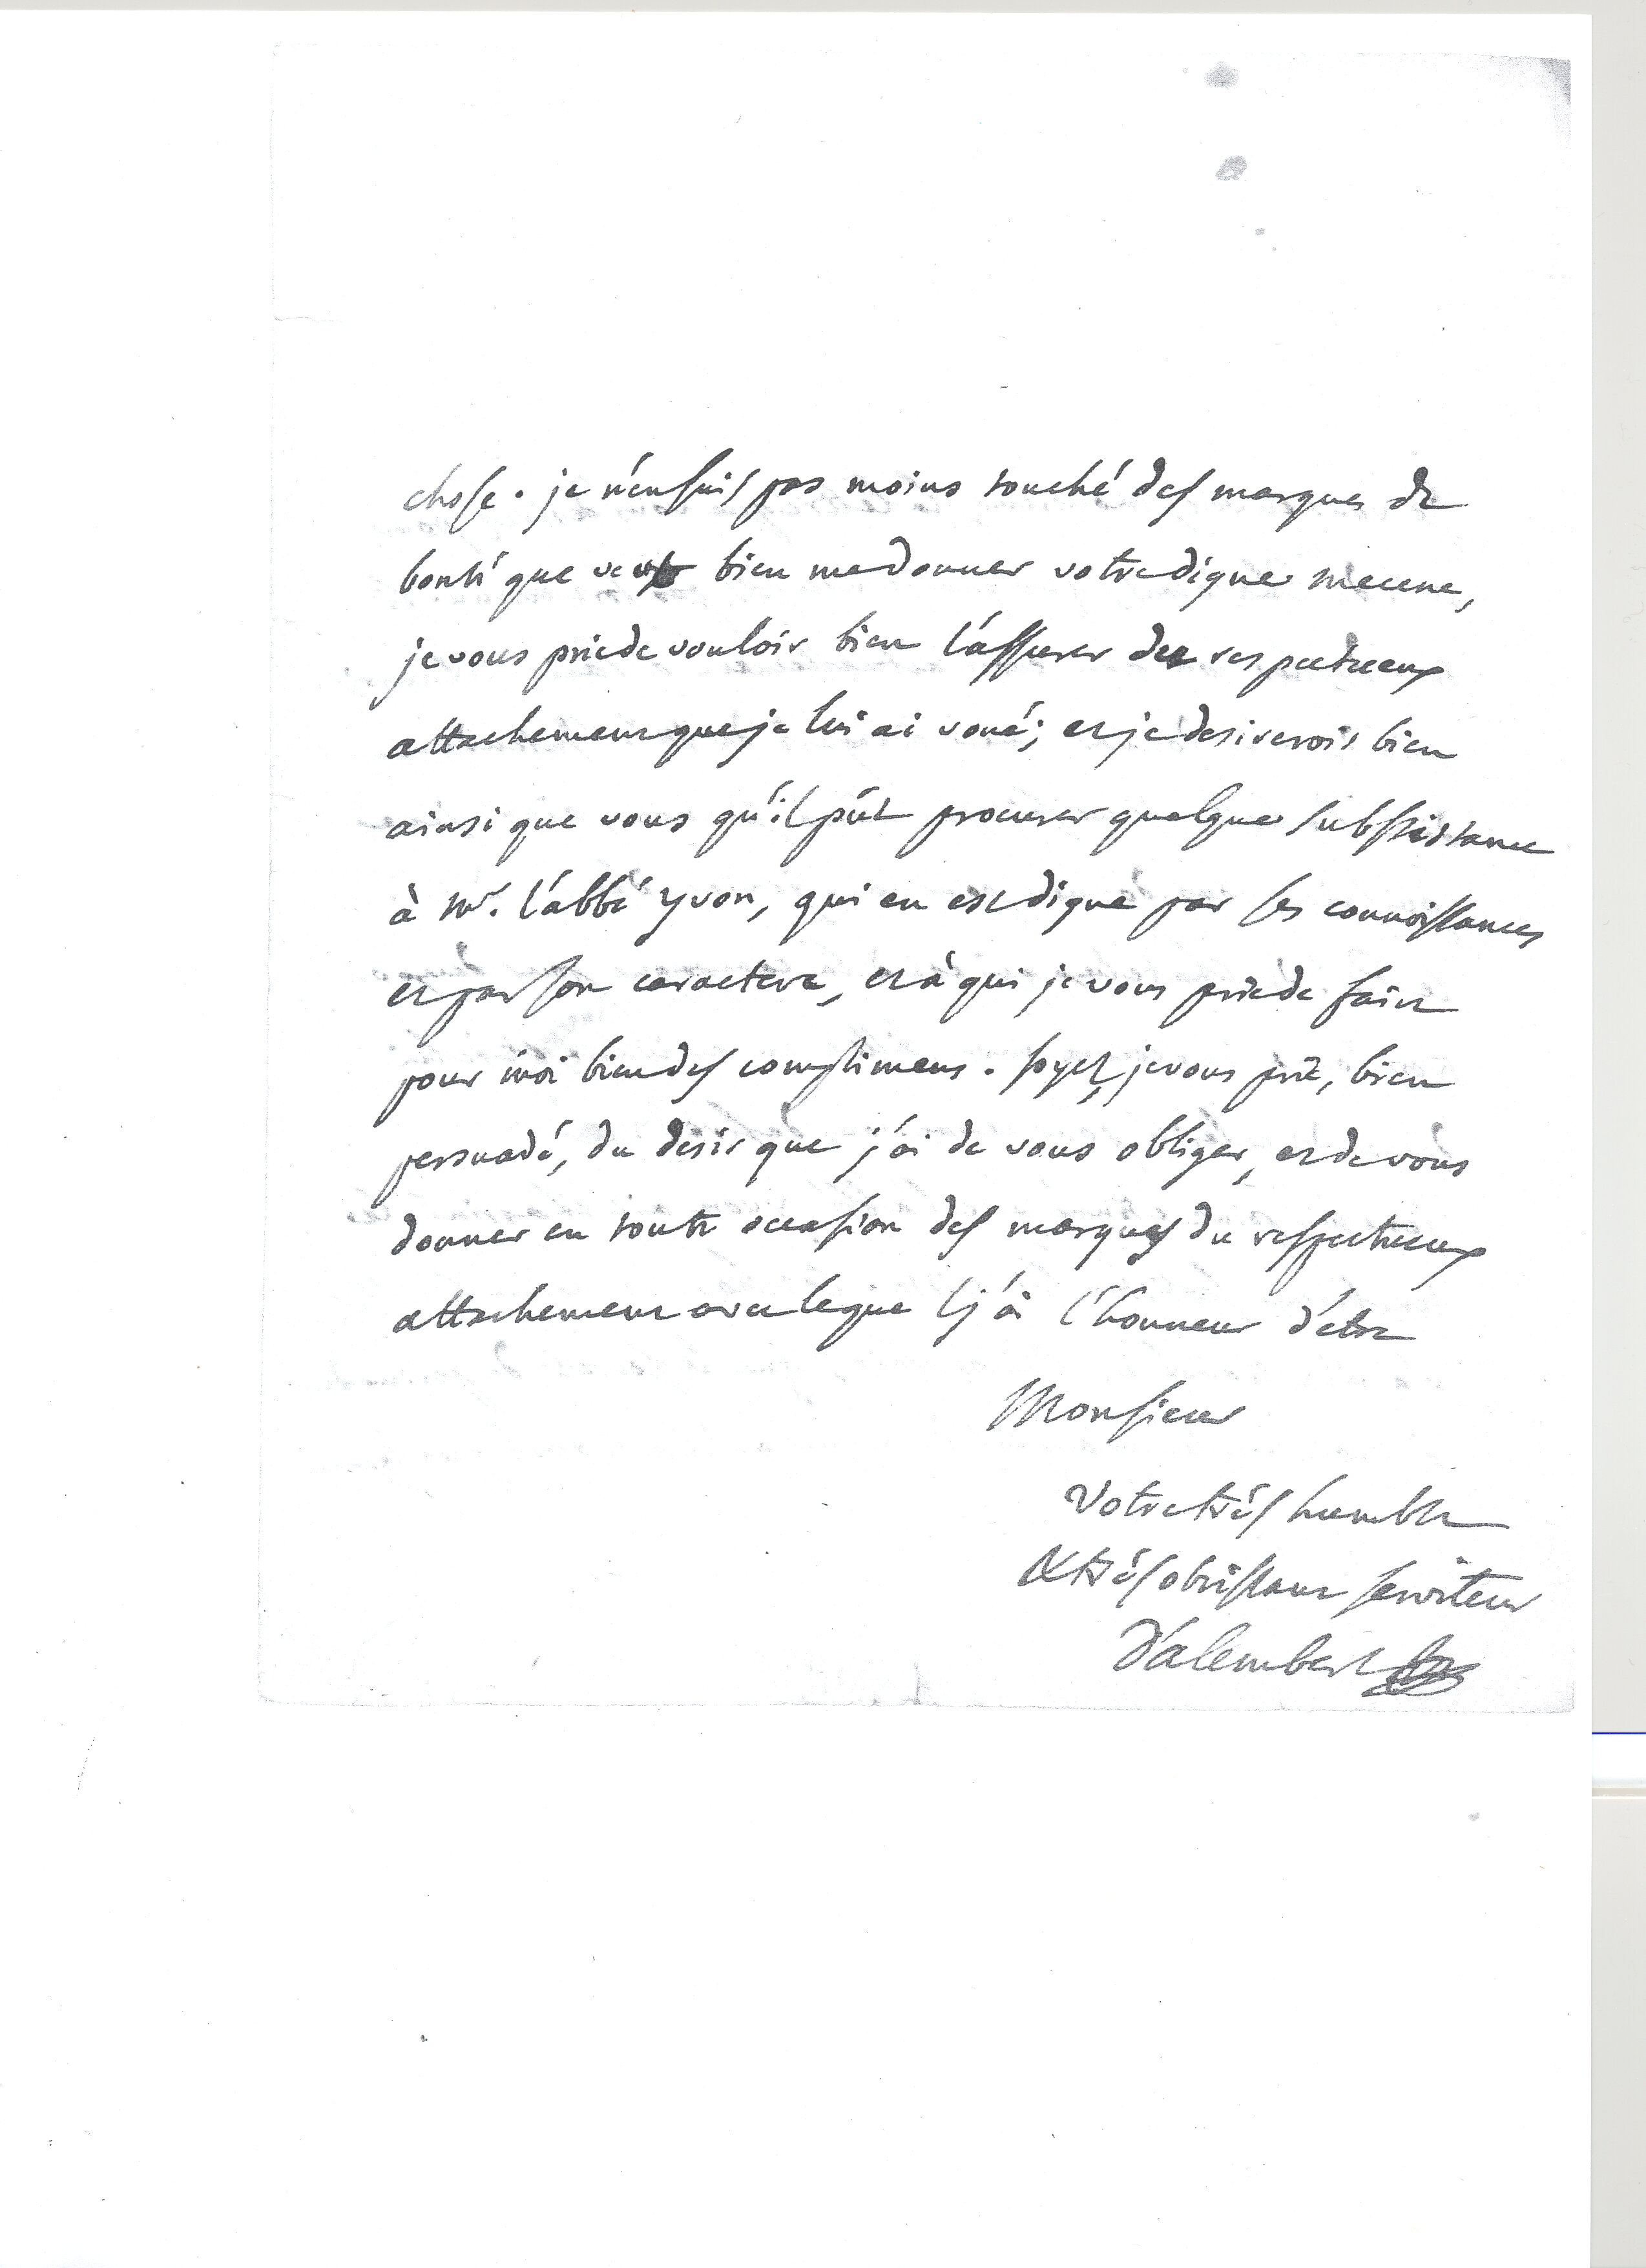 chose. je n'en suis pas moins touché des marques de
bonté que veut bien me donner votre digne mecene,
je vous prie de vouloir bien l'assurer du respectueux
attachement que je lui ai voué; et je desirerois bien
ainsi que vous qu'il pût procurer quelque subsistance
à Mr. l'abbé yvon, qui en est digne par ses connoissances
et par son caractere, et à qui je vous prie de faire
pour moi bien des complimens. soyez, je vous prie, bien
persuadé, du desir que j'ai de vous obliger, et de vous
donner en toute occasion des marques du respectueux
attachement avec lequel j'ai l'honneur d'être
Monsieur
Votre très humble
& très obeissant serviteur
D'alembert